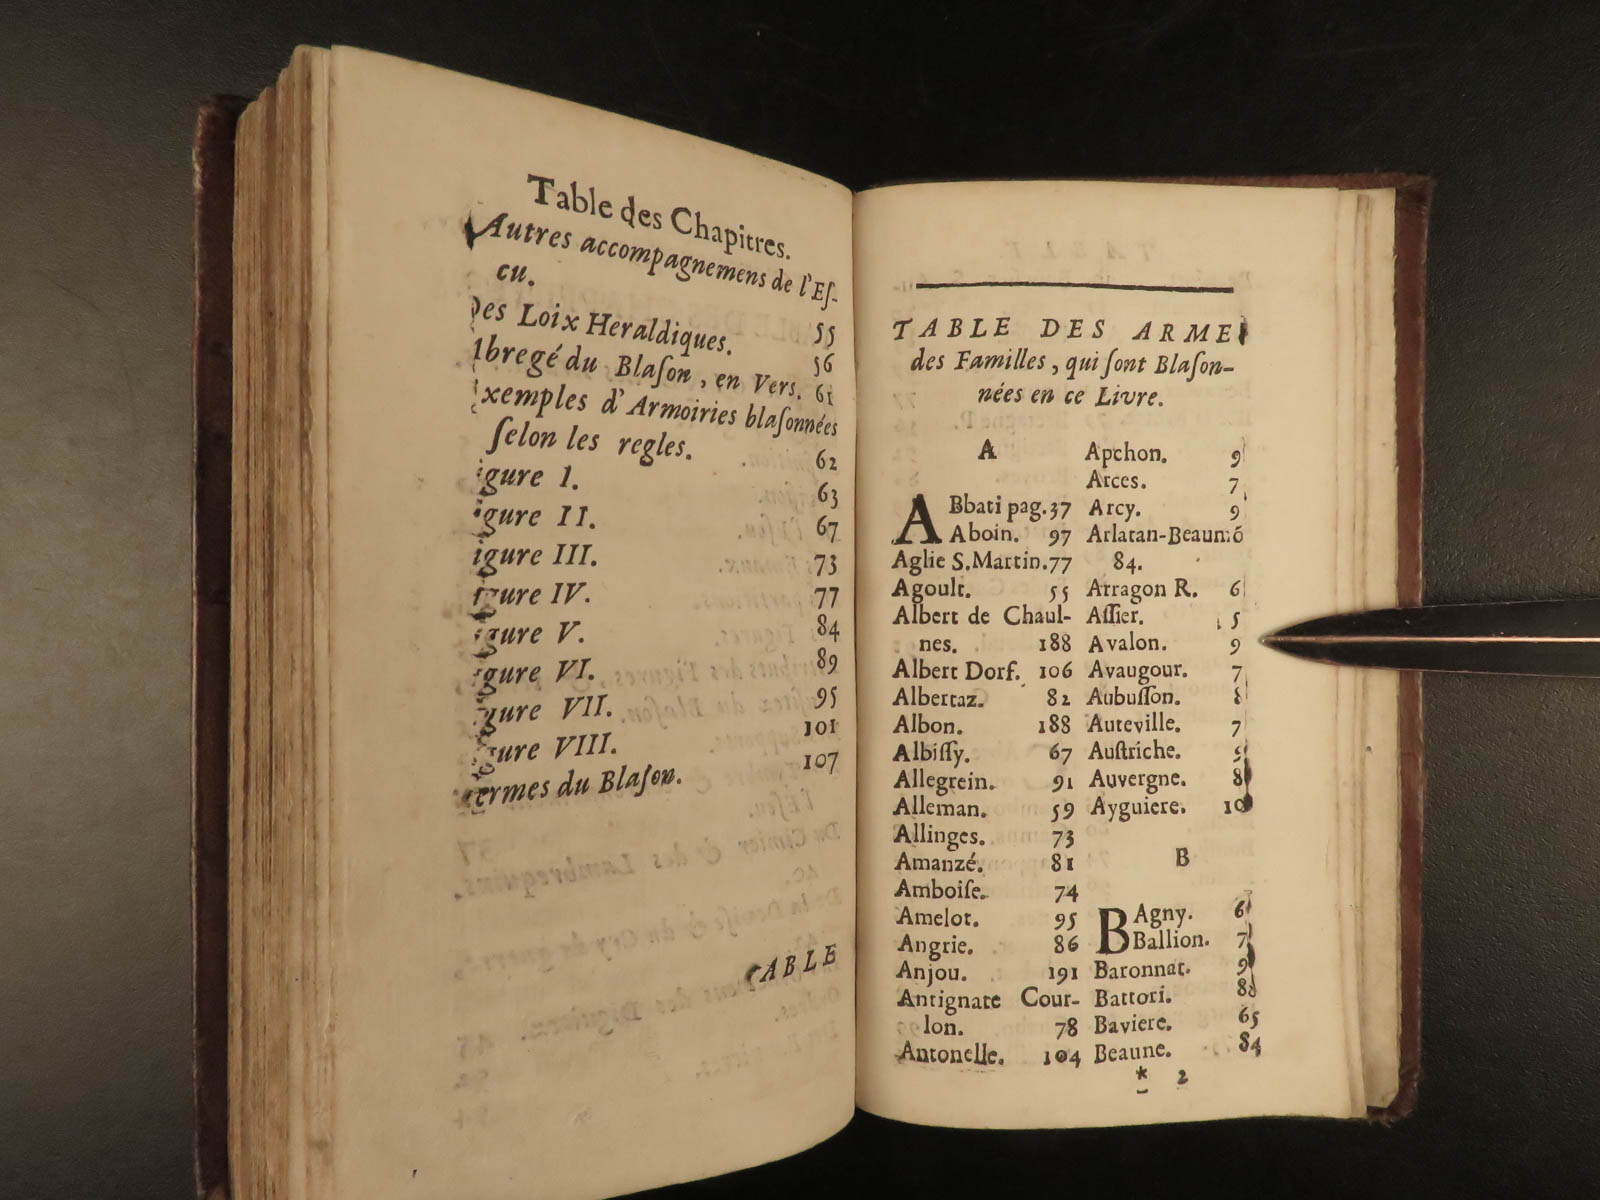 Table des Chapitres.
Autres accompagnemens de l'Eſ-
cu. 55
Des Loix Heraldiques. 56
Abregé du Blaſon, en Vers. 61
Exemples d'Armoiries blaſonnées
ſelon les regles. 62
igure I. 63
igure II. 67
igure III. 73
igure IV. 77
igure V. 84
igure VI. 89
igure VII. 95
gure VIII. 101
ermes du Blaſon. 107
ABLE
TABLE DES ARME
des Familles, qui ſont Blaſon-
nées en ce Livre.
A
ABbati pag. 37
Aboin. 97
Aglie S. Martin. 77
Agoult. 55
Albert de Chaul-
nes. 188
Albert Dorf. 106
Albertaz. 82
Albon. 188
Albiſſy. 67
Allegrein. 91
Alleman. 59
Allinges. 73
Amanzé. 81
Amboiſe. 74
Amelot. 95
Angrie. 86
Anjou. 191
Antignate Cour-
lon. 78
Antonelle. 104
Apchon. 9
Arces. 7
Arcy. 9
Arlatan-Beaumõ
84.
Arragon R. 6
Aſſier. 5
Avalon. 9
Avaugour. 7
Aubuſſon. 8
Auteville. 7
Auſtriche.
Auvergne. 8
Ayguiere. 10
B
BAgny. 6
Ballion. 7
Baronnat. 9
Battori. 88
Baviere. 65
Beaune. 84
* 2